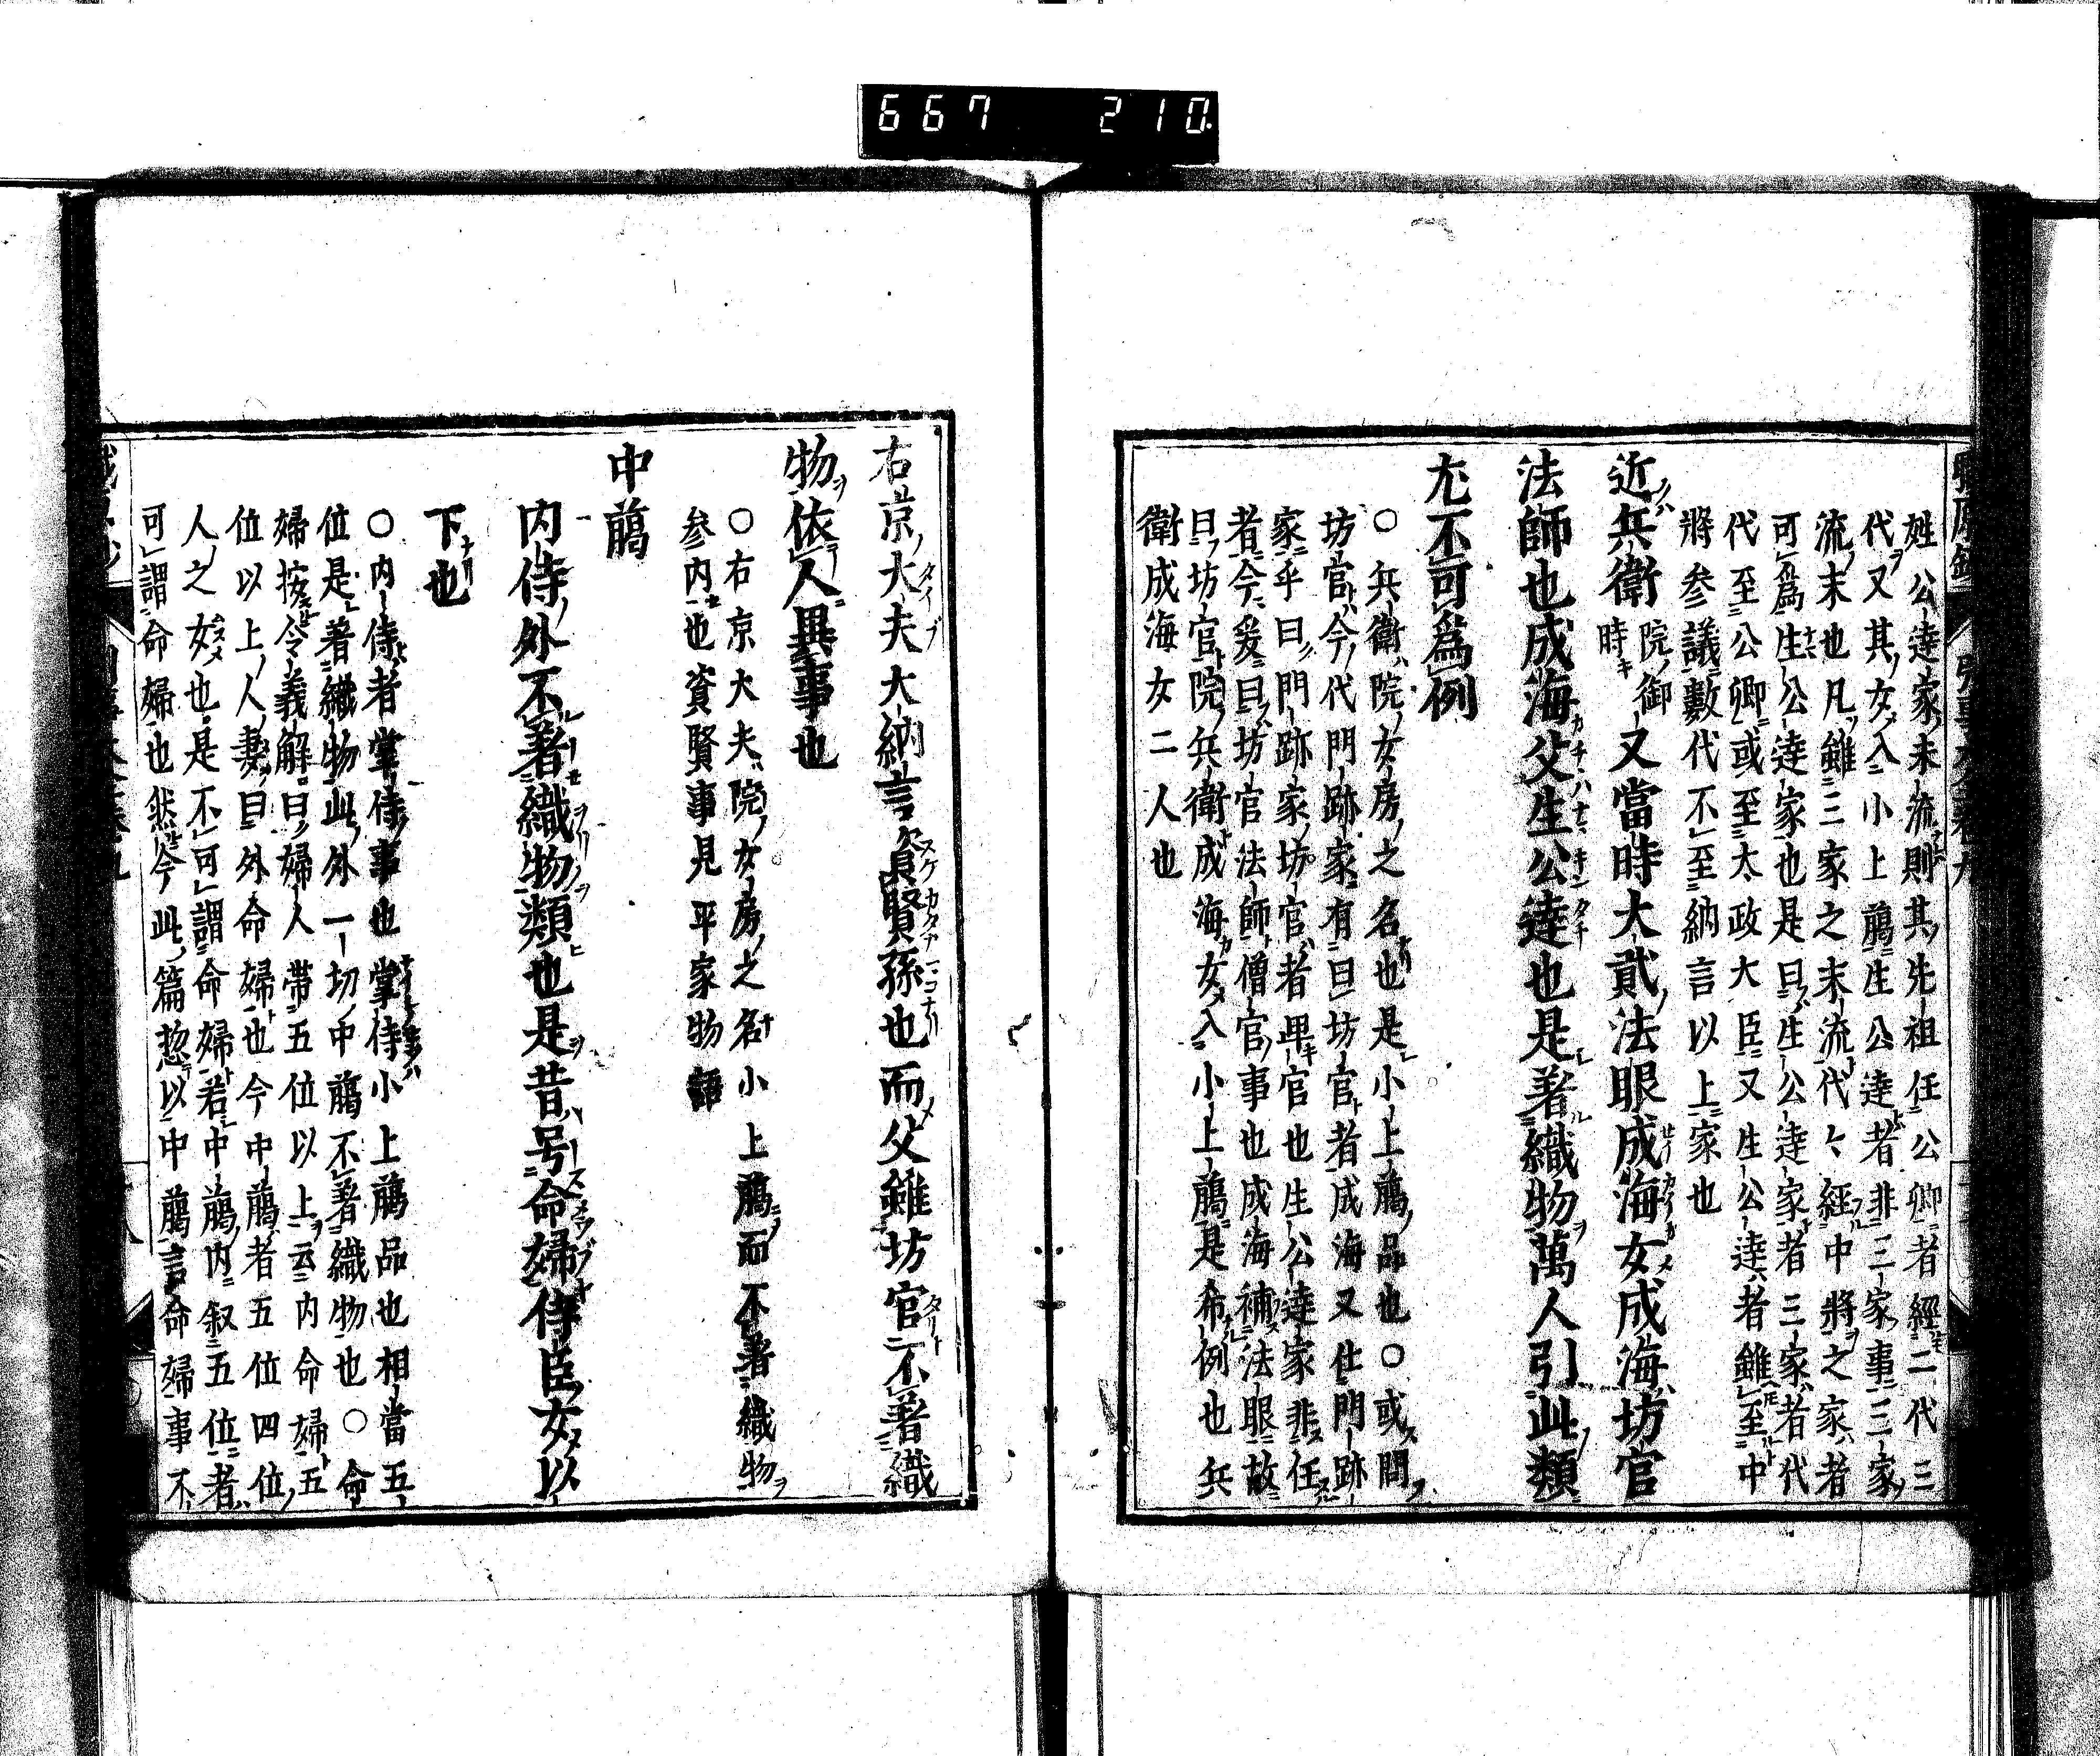 667 210.
姓公達家未流則其先祖任公卿者經二代三
代又其女入小上﨟生公達者非三家事三家
流末也凡雖三家之末流代々經中將之家者
可爲生公達家也是曰生公達家者三家者代
代至公卿或至太政大臣又生公達者雖至中
將參議數代不至納言以上家也
近兵衛院御時又當時大貳法眼成海女成海坊官
法師也成海父生公達也是著織物萬人引此類
尤不可爲例
○兵衛院女房之名也是小上﨟品也○或問
坊官今代門跡家有曰坊官者成海又仕門跡
家乎曰門跡家坊官者卑官也生公達家非任
者今爰曰坊官法師僧官事也成海補法眼故
曰坊官院兵衛成海女入小上﨟是希例也兵
衛成海女二人也
右京大夫大納言資賢孫也而父雖坊官不著織
物依人異事也
○右京大夫院女房之名小上﨟而不著織物
參内也資賢事見平家物語
中﨟
内侍外不著織物類也是昔号命婦侍臣女以
下也
○内侍者掌侍事也掌侍小上﨟品也相當五
位是著織物此外一切中﨟不著織物也○命
婦按令義解曰婦人帶五位以上云内命婦五
位以上人妻曰外命婦也今中﨟者五位四位
人之女也是不可謂命婦若中﨟内叙五位者
可謂命婦也然今此篇惣以中﨟言命婦事不